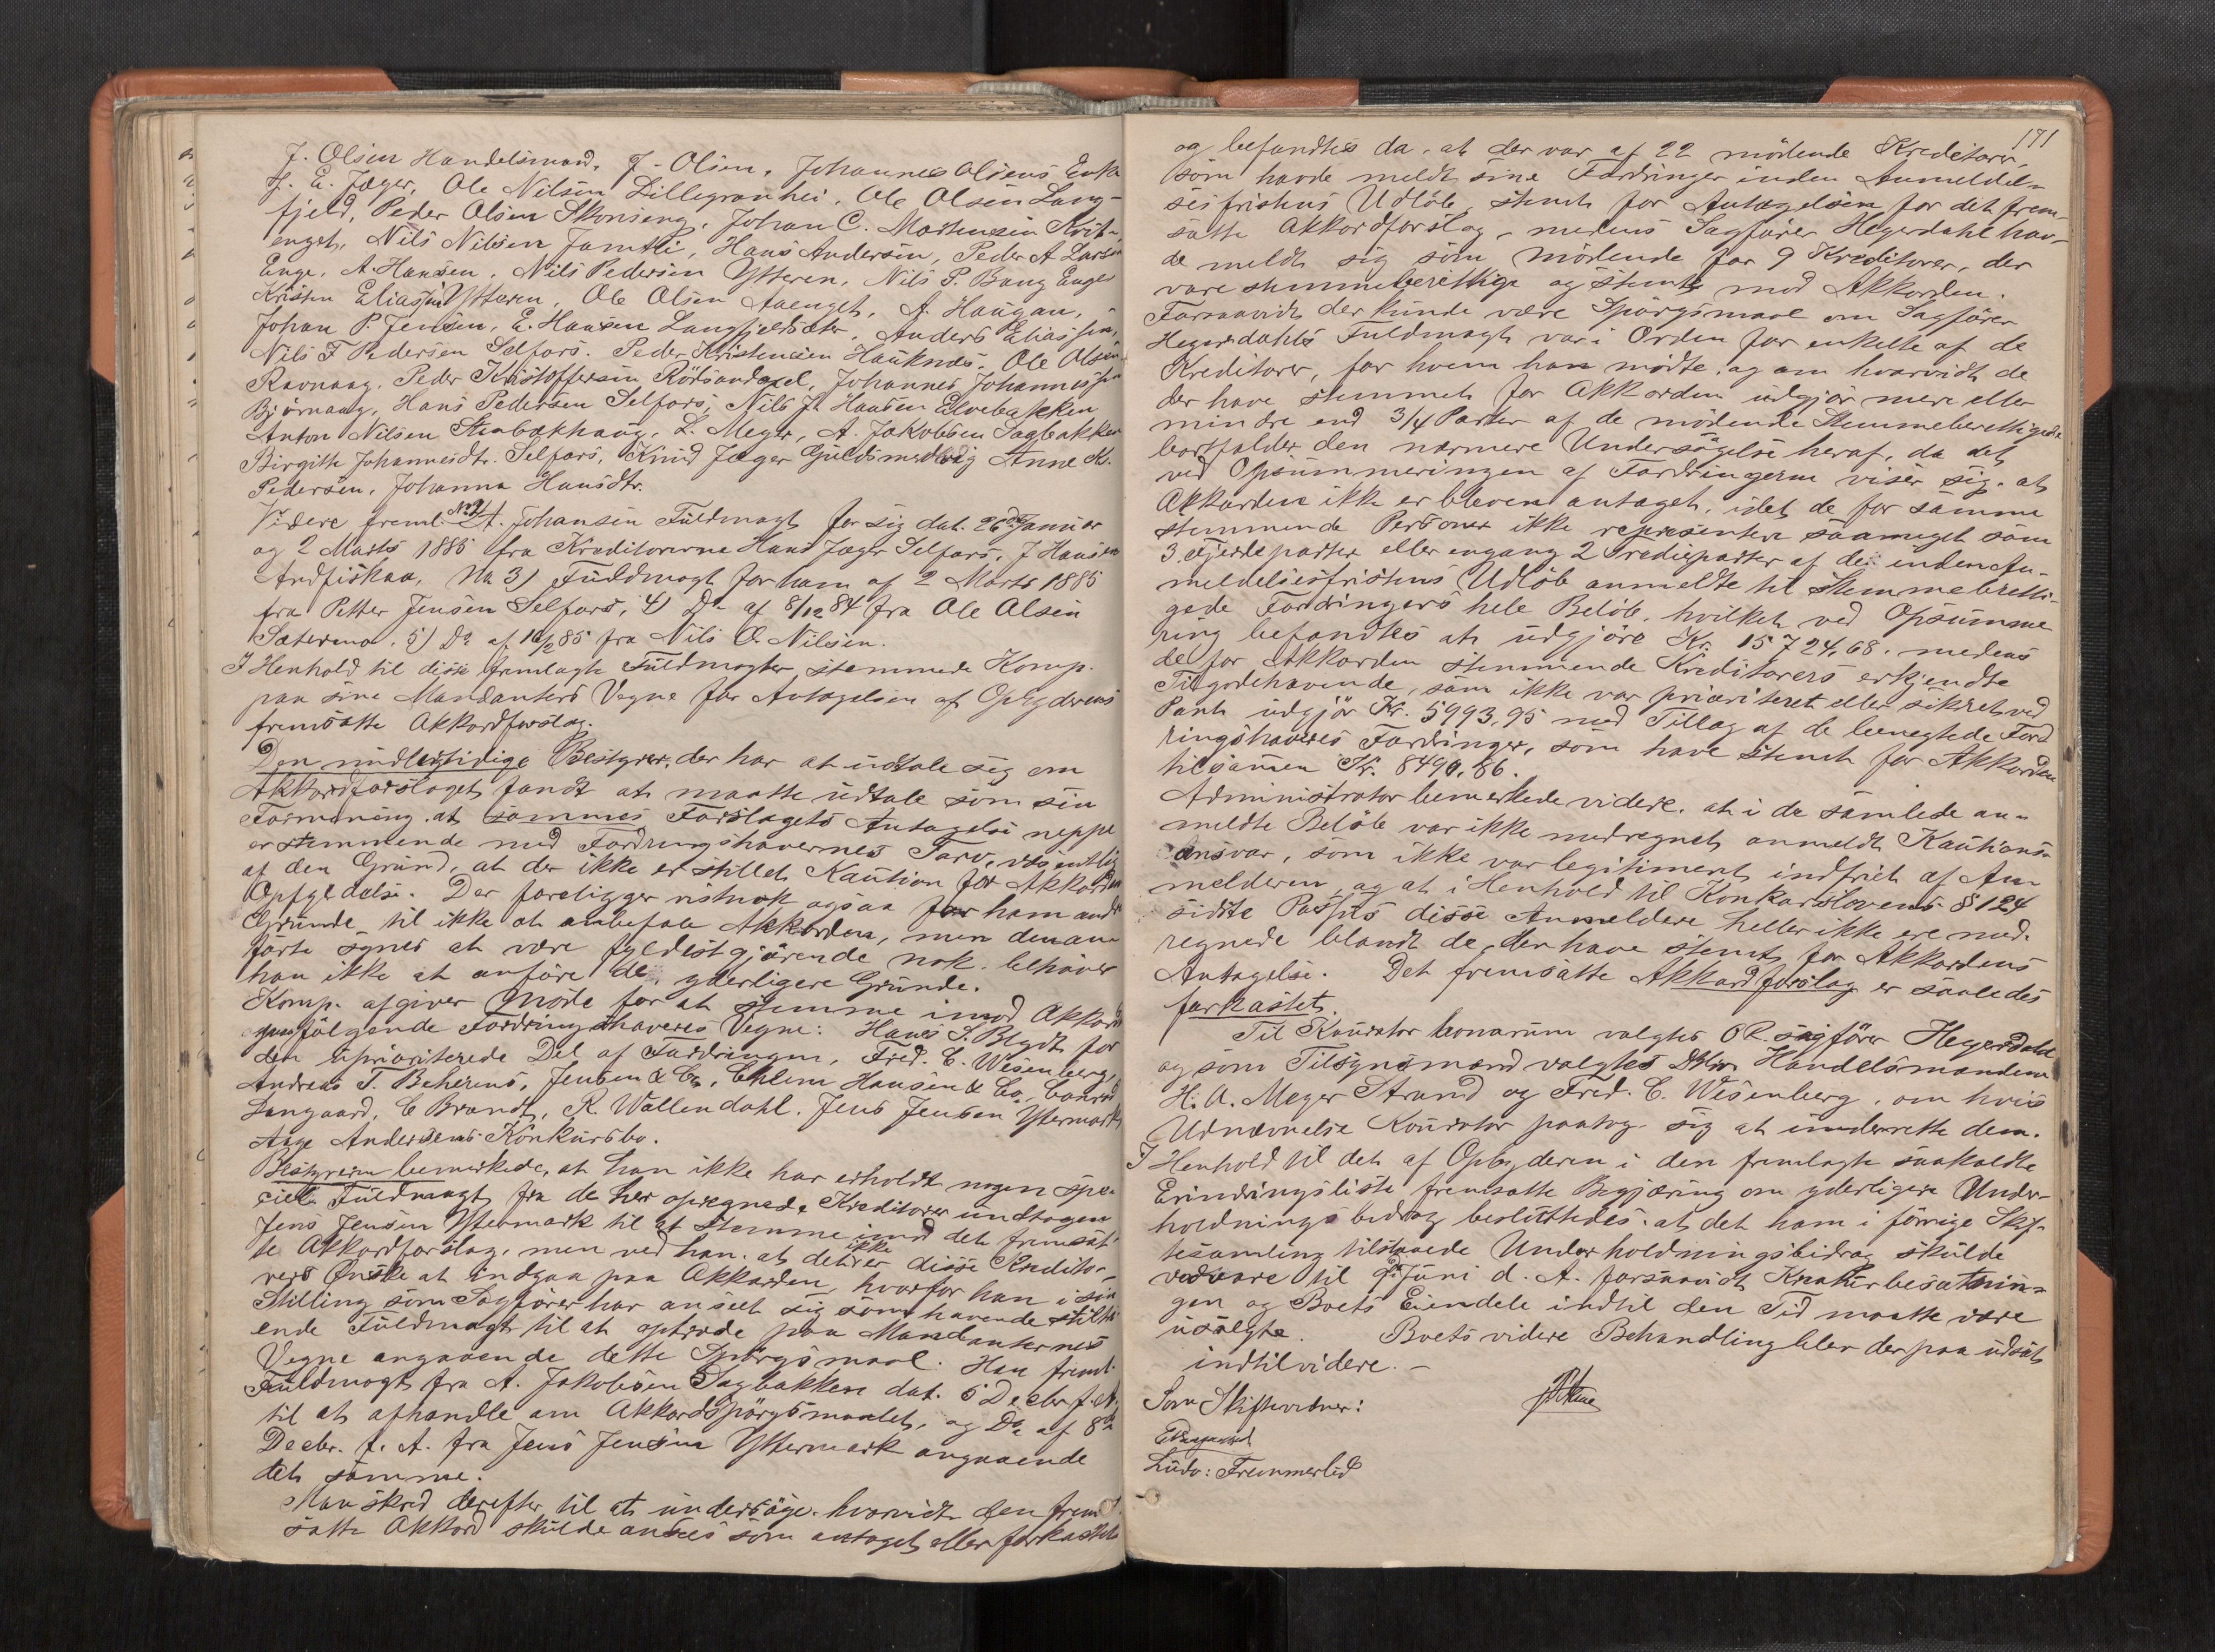 J. Olsen Handelsmand, J. Olsen, Johannes Olsens Enke
H. E. Jæger, Ole Nilsen Lillegronhei, Ole Olsen Lang-
fjeld, Peder Olsen Skonseng, Johan C. Mortensen Kvit-
enget, Nils Nilsen Jamtli, Hans Andersen, Peder A Larsen
Enge, A. Hansen, Nils Pedersen Ytteren, Nils P. Bang Enges
Kristen Eliassen Ytteren, Ole Olsen Aaenget, A. Haugan,
Johan P. Jensen, E. Hansen Langfjeldsæter, Anders Eliassen,
Nils F Pedersen Selfors. Peder Kristensen Hauknæs. Ole Olsen
Ravnaag. Peder Kristoffersen Rödsandaxel, Johannes Johannessen
Bjørnaag, Hans Pedersen Selfors, Nils Jt Hansen Elvebakken
Anton Nilsen Stenbækhaug, L. Meyer, A. Jakobsen Sagbakken
Birgithe Johannesdtr. Selfors, Knud Jæger Guldsmedvig Anne K.
Pedersen, Johanna Hansdtr.
Videre freml. No 2/ A. Johansen Fuldmagt for sig dat. 26de Januar
og 2 Marts 1885 fra Kreditorerne Hans Jæger Selfors, J Hansen
Andfiskaa, No 3) Fuldmagt for ham af 2 Marts 1885
fra Petter Jensen Selfors, 4) Do af 8/12 84 fra Ole Olsen
Sætermo. 5) Do af 10/2 85 fra Nils O. Nilsen.
I Henhold til disse fremlagte Fuldmagter stemmede Komp.
paa sine Mandanters Vegne for Antagelsen af Opbyderens
fremsatte Akkordforslag.
Den midlertidige Bestyrer, der har at udtale sig om
Akkordforslaget fandt at maatte udtale som sin
Formening at sammes Forslagets Antagelse neppe
er stemmende med Fordringshavernes Tarv, væsentlig
af den Grund, at der ikke er stillet Kaution for Akkordens
Opfyldelse. Der foreligger vistnok ogsaa for ham andre
Grunde til ikke at anbefale Akkorden, men den an-
førte synes at være fyldestgjørende nok. behøver
han ikke at anføre de yderligere Grunde.
Komp. afgiver Møde for at stemme imod Akkorden
paa følgende Fordringshaveres Vegne: Hans S. Blydt for
den upriariterede Del af Fordringen, Fred. C. Wesenberg,
Andreas T. Behrens, Jensen & Co, Ehlem Hansen & Co, Conrad
Langaard, C Brandt, R. Wallendahl. Jens Jensen Yttermark
Aage Andersens Konkursbo.
Bestyreren bemærkede, at han ikke har erholdt nogen spe-
ciel Fuldmagt fra de her opregnede Kreditorer undtagen
Jens Jensen Yttermark til at stemme imod det fremsat-
te Akkordforslag, men ved han at det ikke er disse Kredito-
rers Ønske at indgaa paa Akkorden, hvorfor han i sin
Stilling som Sagfører har anseet sig som havende stilti-
ende Fuldmagt til at optræde paa Mandanternes
Vegne angaaende dette Spørgsmaal. Han freml.
Fuldmagt fra A. Jakobsen Sagbakken dat. 6 Decbr f. A.
til at afhandle om Akkordspørgsmaalet, og Do af 8de
Decbr. f. A. fra Jens Jensen Yttermark angaaende
det samme.
Man skred derefter til at undersøge hvorvidt den frem-
satte Akkord skulde ansees som antaget eller forkastet
171
og befandtes da, at der var af 22 mødende Kreditorer,
som havde meldt sine Fordringer inden Anmeldel-
sesfristens Udløb, stemt for Antagelsen for det frem-
satte Akkordforslag, medens Sagfører Hegerdahl hav-
de meldt sig som mødende for 9 Kreditorer, der
vare stemmeberettige og stemte mod Akkorden.
Forsaavidt der kunde være Spørgsmaal om Sagfører
Hegerdahls Fuldmagt var i Orden for enkelte af de
Kreditorer, for hvem han mødte, og om hvorvidt de
der have stemmet for Akkorden udgjør mere eller
mindre end 3/4 Parter af de mødende Stemmeberettigede
bortfalder den nærmere Undersøgelse heraf, da det
ved Opsummeringen af Fordringerne viser sig, at
Akkorden ikke er bleven antaget, idet de for samme
stemmende Personer ikke repræsentere saameget som
3 Fjerdeparter eller engang 2 Trediparter af de inden An-
meldelsesfristens Udløb anmeldte til Stemmeberetti-
gede Fordringers hele Beløb, hvilket ved Opsumme-
ring befandtes at udgjøre Kr. 15724,68, medens
de for Akkorden stemmende Kreditorers erkjendte
Tilgodehavende, som ikke var prioriteret eller sikret ved
Pant udgjør Kr. 5993,95 med Tillæg af de benegtede Ford
ringshaveres Fordringer, som have stemt for Akkorden
tilsammen Kr. 8490,86.
Administrator bemærkede videre, at i de samlede an-
meldte Beløb var ikke medregnet anmeldt Kautions-
ansvar, som ikke var legitimeret indfriet af An-
melderen, og at i Henhold til Konkurslovens § 124
sidste Passus disse Anmeldere heller ikke ere med-
regnede blandt de, der have stemt for Akkordens
Antagelse. Det fremsatte Akkordforslag er saaledes
forkastet.
Til Kurator bonorum valgtes OR.sagfører Hegerdahl
og som Tilsynsmænd valgtes Handelsmændene
H. A. Meyer Strand og Fred. C. Wesenberg, om hvis
Udnævnelse Kurator paatog sig at underrette dem.
I Henhold til det af Opbyderen i den fremlagte saakaldte
Erindringsliste fremsatte Begjæring om yderligere Under-
holdningsbidrag besluttedes, at det ham i forrige Skif-
tesamling tilstaaede Underholdningsbidrag skulde
vedvare til 9de Juni d. A. forsaavidt Kreaturbesætnin-
gen og Boets Eiendele indtil den Tid maatte være
usolgte. Boets videre Behandling blev derpaa udsat
indtilvidere. –
Som Skiftevidner:
Ludv: Fremmerlid